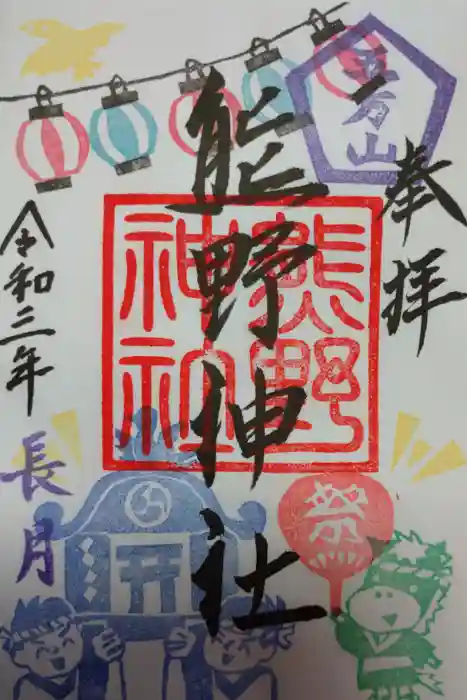 奉拝
五方山
熊野神社
熊野
神社
祭
令和三年
長月